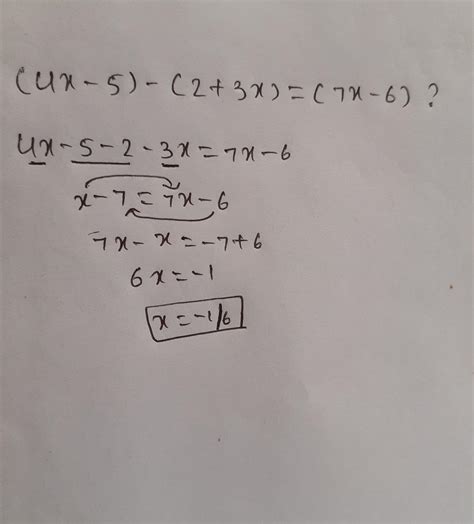 (4x-5)-(2+3x)=(7x-6)?
4x-5-2-3x=7x-6
x-7=7x-6
7x-x=-7+6
6x=-1
x=-1/6